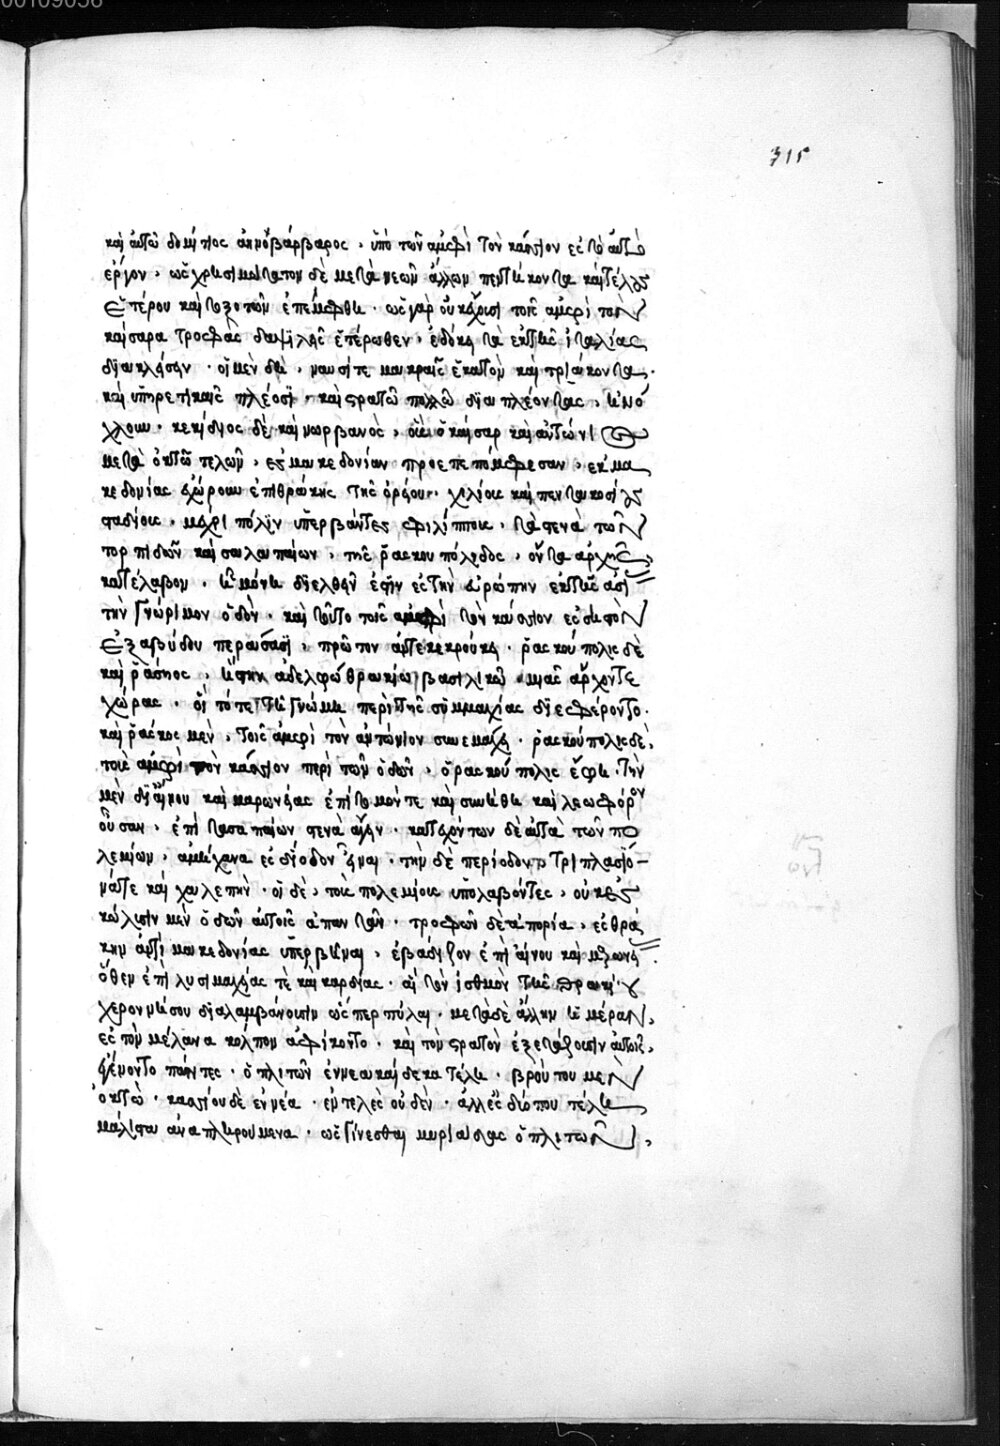 00109058
315
καὶ αὐτῶ δομίτιος ἀηνόβάρβαρος, ὑπὸ τῶν ἀμφὶ τὸν κάσσιον ἐς τὸ αὐτὸ
ἔργον, ὡς χρησιμώτατον δὲ μετὰ νεῶν ἄλλων πεντήκοντα καὶ τέλους
ἑτέρου καὶ τοξοτῶν ἐπέμφθη· ὡς γὰρ οὐκ ἔχουσι τοῖς ἀμφὶ τὸν
καίσαρα τροφὰς δαψιλεῖς ἑτέρωθεν, ἐδόκει τὰ ἐκ τῆς ἰταλίας
διακλείειν· οἱ μὲν δὴ, ναυσί τε μακραῖς ἑκατὸν καὶ τριάκοντα
καὶ ὑπηρετικαῖς πλέοσι, καὶ στρατῶ πολλῶ διαπλέοντας, ἠνώ
χλουν· κεκίδιος δὲ καὶ νωρβανὸς, οὓς ὁ καῖσαρ καὶ ἀντώνιος
μετὰ ὀκτὼ τελῶν, ἐς μακεδονίαν προεπεπόμφεσαν, ἐκ μα
κεδονίας ἐχώρουν ἐπὶ θράκης τῆς ὀρείου· χιλίους καὶ πεντακοσίους
σταδίους, μέχρι πόλιν ὑπερβάντες φιλίππους, τὰ στενὰ τῶν
τορπιδῶν καὶ σαλαπαίων, τῆς ῥασκουπόλιδος, ὄντα ἀρχῆς,
κατέλαβον, ἧ μόνη διελθεῖν ἐστὶν ἐς τὴν εὐρώπην ἐκ τῆς ἀσίας
τὴν γνώριμον ὁδὸν· καὶ τοῦτο τοῖς ἀμφὶ τὸν κάσσιον ἐς σηστὸν
ἐξ ἀβύδου περάσασι, πρῶτον ἀντεκεκρούκει· ῥασκούπολις δὲ
καὶ ῥάσκος, ἤστην ἀδελφὼ θρακίω βασιλικὼ μιᾶς ἄρχοντε
χώρας· οἳ τότε τῆ γνώμη περὶ τῆς συμμαχίας διεφέροντο·
καὶ ῥάσκος μὲν, τοῖς ἀμφὶ τὸν ἀντώνιον συνεμάχει· ῥασκούπολις δὲ,
τοῖς ἀμφὶ τὸν κάσσιον περὶ τῶν ὁδῶν, ὁ ῥασκούπολις ἔφη· τὴν
μὲν δι' αἴνου καὶ μαρωνείας ἐπίτομόν τε καὶ συνήθη καὶ λεωφόρον
οὖσαν, ἐπὶ τὰ σαπαίων στενὰ ἄγειν· κατεχόντων δὲ αὐτὰ τῶν πο
λεμίων, ἀμήχανα ἐς δίοδον εἶναι· τὴν δὲ περίοδον, τριπλασίο-
νά τε καὶ χαλεπὴν· οἱ δὲ, τοὺς πολεμίους ὑπολαβόντες, οὐκ ἐς
κώλυσιν μὲν ὁδῶν αὐτοῖς ἀπαντᾶν· τροφῶν δὲ ἀπορία, ἐς θρά
κην ἀντὶ μακεδονίας ὑπερβῆναι, ἐβάδιζον ἐπὶ αἴνου καὶ μαρωνείας
ὅθεν ἐπὶ λυσιμαχείας τὲ καὶ καρδίας· αἳ τὸν ἰσθμὸν τῆς θρακίου
χερονήσου διαλαμβάνουσιν ὥσπερ πύλαι· μετὰ δὲ ἄλλην ἡμέραν,
ἐς τὸν μέλανα κόλπον ἀφίκοντο· καὶ τὸν στρατὸν ἐξετάζουσιν αὐτοῖς,
ἐγένοντο πάντες· ὁπλιτῶν ἐννεακαίδεκα τέλη· βρούτου μὲν
ὀκτὼ· κασσίου δὲ ἐννέα· ἐντελὲς οὐδὲν· ἀλλ' ἐς δύο που τέλη
μάλιστα ἀναπληρούμενα· ὡς γίνεσθαι μυριάδας ὁπλιτῶν,